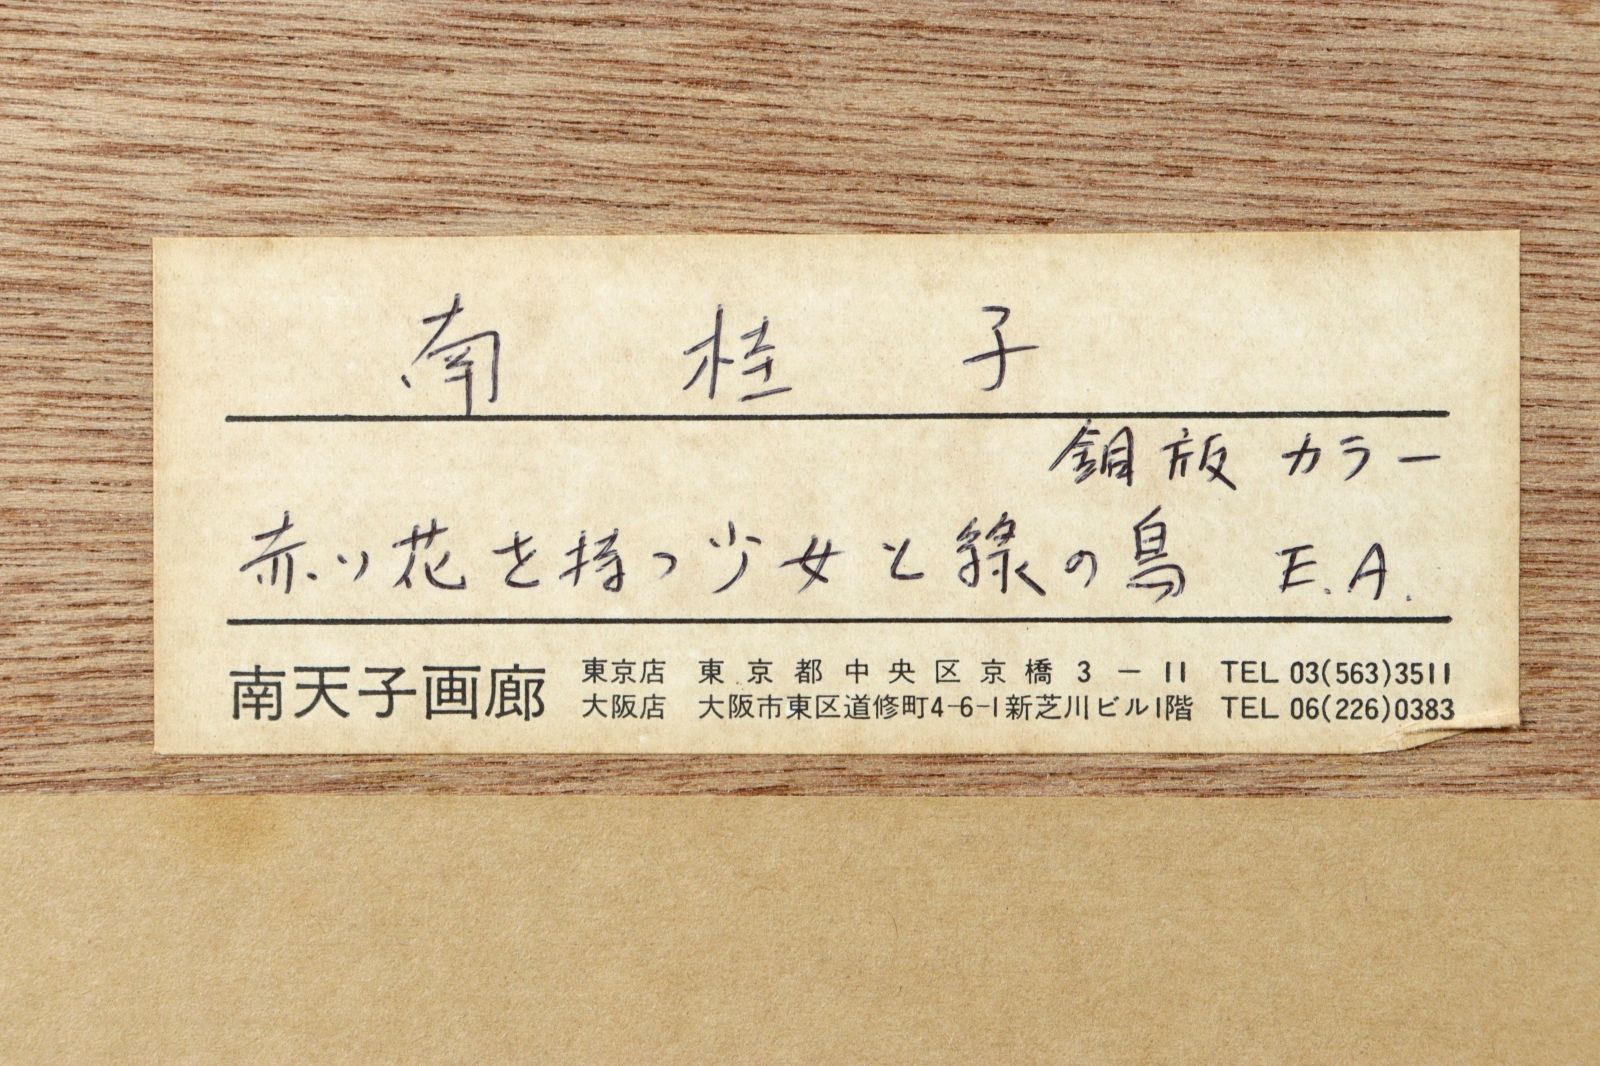 南 桂 子
銅版 カラー
赤い花を持つ少女と緑の鳥 E.A.
南天子画廊 東京店 東京都中央区京橋3-11 TEL 03(563)3511
大阪店 大阪市東区道修町4-6-1新芝川ビル1階 TEL 06(226)0383